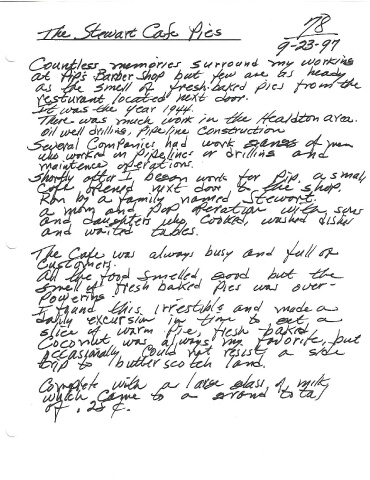 The Stewart Cafe Pies
78
9-23-97
Countless memories surround my working
at Pip's Barber Shop but few are as heady
as the smell of fresh-baked pies from the
resturant located next door.
It was the year 1944.
There was much work in the Healdton area.
oil well drilling, Pipeline Construction
Several Companies had work gangs of men
who worked on Pipelines or drilling and
maintence operations.
Shortly after I began work for Pip, a small
Cafe opened next door to the shop.
Ran by a family named Stewart.
a mom and Pop operation with sons
and daughters who Cooked, washed dishes
and waited tables.
The Cafe was always busy and full of
Customers.
All the food smelled good but the
smell of fresh baked Pies was over-
powering.
I found this irrestible and made a
daily excursion in time to eat a
slice of warm Pie, fresh baked.
Coconut was always my favorite, but
occasionally Could not resist a side
trip to butterscotch land.
Complete with a large glass of milk,
which Came to a grand total
of .25 ¢.